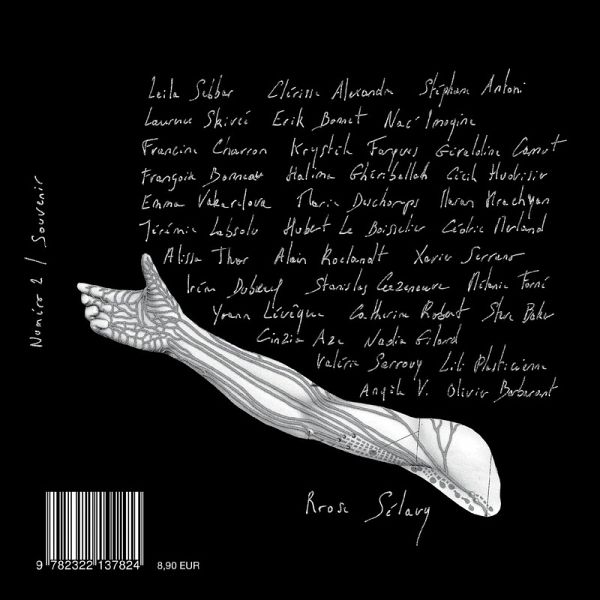 Leïla Sebbar Clérisse Alexandre Stéphane Antoni
Laurence Skivée Erik Bonnet Nac'Imagine
Francine Charron Krystil Farques Géraldine Camut
François Bonneau Halima Ghériballah Cécil Hudrisier
Emma Vakarelova Marie Deschamps Maran Hrachyan
Jérémie Labsolu Hubert Le Boisselier Cédric Merland
Alissa Thor Alain Roelandt Xavier Serrano
Irène Duboeuf Stanislas Cazeneuve Mélanie Forné
Yoann Lévêque Catherine Robert Steve Baker
Cinzia Aze Nadia Gilard
Valérie Serrouy Lili Plasticienne
Angèle V. Olivier Barbarant
Rrose Sélavy
Numéro 2 / Souvenir
9 782322 137824
8,90 EUR